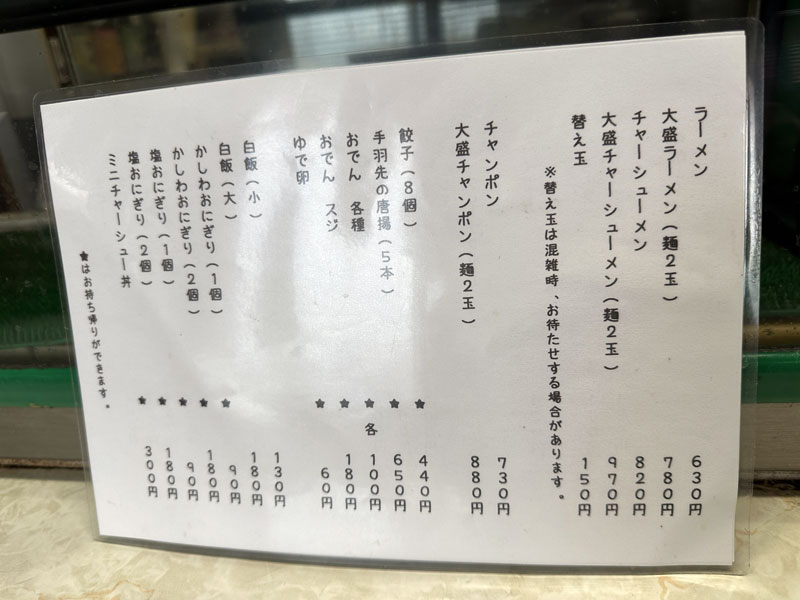 ラーメン 630円
大盛ラーメン(麺2玉) 780円
チャーシューメン 820円
大盛チャーシューメン(麺2玉) 970円
替え玉 150円
※替え玉は混雑時、お待たせする場合があります。
チャンポン 730円
大盛チャンポン(麺2玉) 880円
餃子(8個) ★ 440円
手羽先の唐揚(5本) ★ 650円
おでん 各種 ★ 各100円
おでん スジ ★ 180円
ゆで卵 ★ 60円
白飯(小) 130円
白飯(大) 180円
かしわおにぎり(1個) ★ 90円
かしわおにぎり(2個) ★ 180円
塩おにぎり(1個) ★ 90円
塩おにぎり(2個) ★ 180円
ミニチャーシュー丼 ★ 300円
★はお持ち帰りができます。